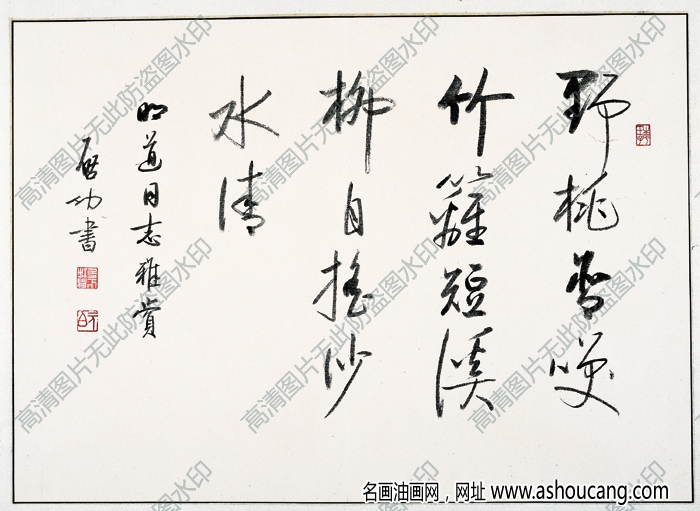 野桃含咲
竹籬短溪
柳自搖沙
水清
明道同志雅賞
启功書
高清图片无此防盗图水印
名画油画网，网址 www.ashoucang.com